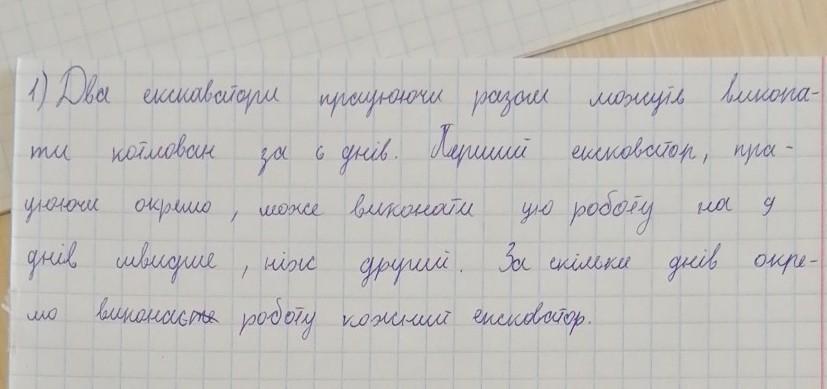 1) Два екскаватори працюючи разом можуть викопа-
ти котлован за 6 днів. Перший ексковатор, пра-
цюючи окремо, може виконати цю роботу на 9
днів швидше, ніж другий. За скільки днів окре-
мо виконає роботу кожний ексковатор.